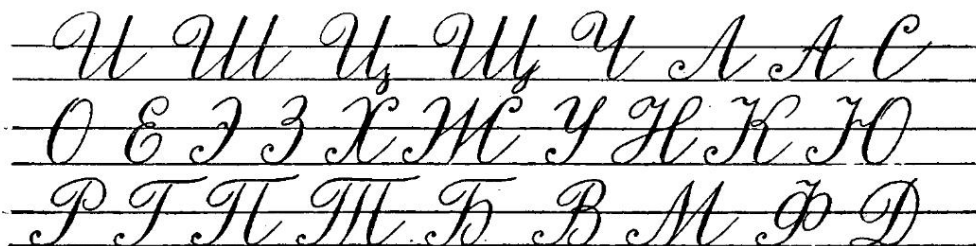 И Ш Ц Щ Ч Л А С
О Е Э З Х Ж У Н К Ю
Р Г П Т Б В М Ф Д